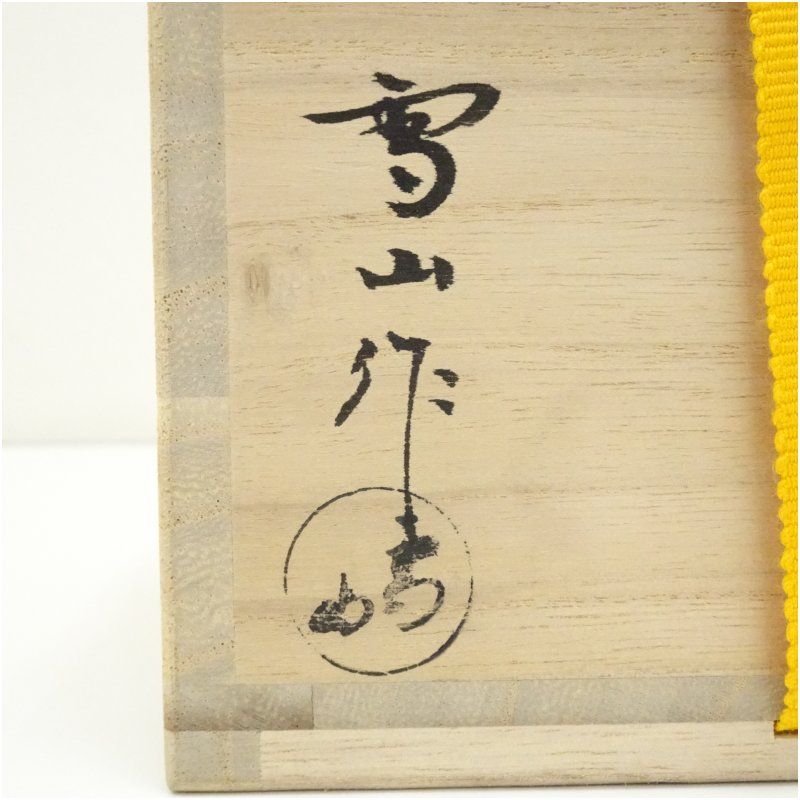 雪山作